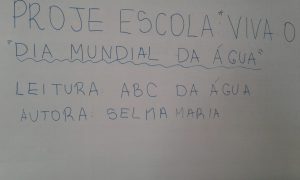 PROJE ESCOLA "VIVA O
"DIA MUNDIAL DA ÁGUA"
LEITURA ABC DA ÁGUA
AUTORA: SELMA MARIA